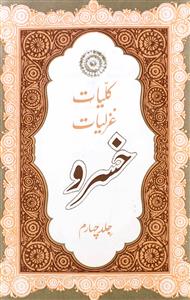 کلیات
غزلیات
خسرو
جلد چهارم